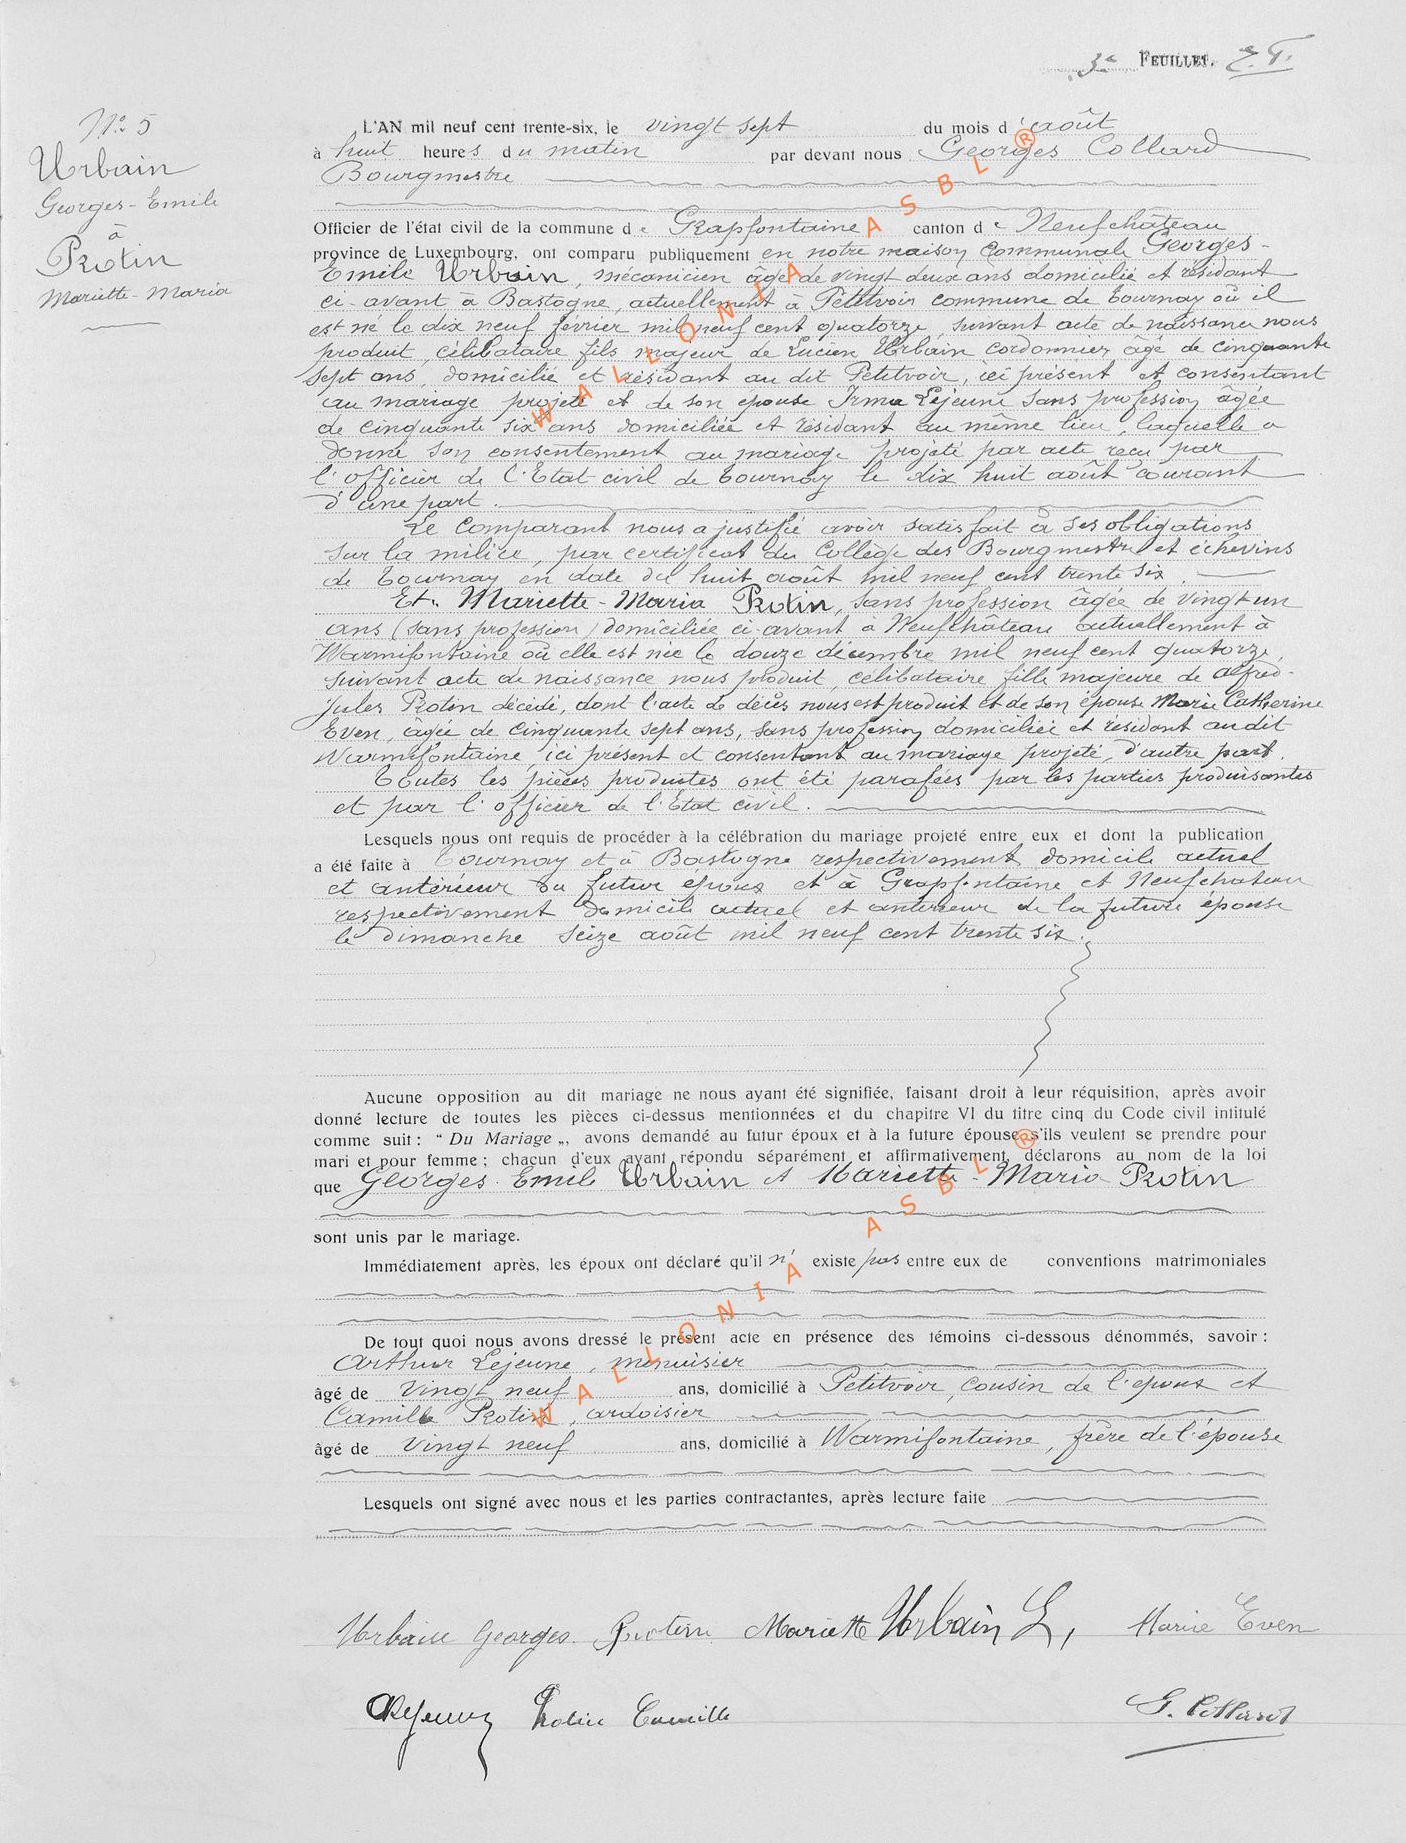 3e FEUILLET.
No 5
Urbain
Georges-Emile
à
Protin
Mariette-Maria
L'AN mil neuf cent trente-six, le vingt sept du mois d'août
à huit heures du matin par devant nous Georges Collard
Bourgmestre
Officier de l'état civil de la commune de Grapfontaine canton de Neufchâteau
province de Luxembourg, ont comparu publiquement en notre maison communale Georges-
Emile Urbain, mécanicien âgé de vingt deux ans domicilié et résidant
ci-avant à Bastogne, actuellement à Petitvoir commune de Tournay où il
est né le dix neuf février mil neuf cent quatorze, suivant acte de naissance nous
produit, célibataire fils majeur de Lucien Urbain cordonnier âgé de cinquante
sept ans, domicilié et résidant au dit Petitvoir, ici présent et consentant
au mariage projeté et de son épouse Irma Lejeune sans profession âgée
de cinquante six ans domiciliée et résidant au même lieu, laquelle a
donné son consentement au mariage projeté par acte reçu par
l'officier de l'Etat civil de Tournay le dix huit août courant
d'une part.
Le comparant nous a justifié avoir satisfait à ses obligations
sur la milice, par certificat du Collège des Bourgmestre et échevins
de Tournay en date du huit août mil neuf cent trente six.
Et. Mariette-Maria Protin, sans profession âgée de vingt un
ans (sans profession) domiciliée ci-avant à Neufchâteau actuellement à
Warmifontaine où elle est née le douze décembre mil neuf cent quatorze,
suivant acte de naissance nous produit, célibataire fille majeure de Alfred-
Jules Protin décédé, dont l'acte de décès nous est produit et de son épouse Marie Catherine
Even, âgée de cinquante sept ans, sans profession domiciliée et résidant au dit
Warmifontaine, ici présent et consentant au mariage projeté, d'autre part.
Toutes les pièces produites ont été parafées par les parties produisantes
et par l'officier de l'Etat civil.
Lesquels nous ont requis de procéder à la célébration du mariage projeté entre eux et dont la publication
a été faite à Tournay et à Bastogne respectivement domicile actuel
et antérieur du futur époux et à Grapfontaine et Neufchateau
respectivement domicile actuel et antérieur de la future épouse
le dimanche seize août mil neuf cent trente six.
Aucune opposition au dit mariage ne nous ayant été signifiée, faisant droit à leur réquisition, après avoir
donné lecture de toutes les pièces ci-dessus mentionnées et du chapitre VI du titre cinq du Code civil intitulé
comme suit : “ Du Mariage „, avons demandé au futur époux et à la future épouse s'ils veulent se prendre pour
mari et pour femme ; chacun d'eux ayant répondu séparément et affirmativement, déclarons au nom de la loi
que Georges-Emile Urbain et Mariette-Maria Protin
sont unis par le mariage.
Immédiatement après, les époux ont déclaré qu'il n'existe pas entre eux de conventions matrimoniales
De tout quoi nous avons dressé le présent acte en présence des témoins ci-dessous dénommés, savoir :
Arthur Lejeune, menuisier
âgé de vingt neuf ans, domicilié à Petitvoir, cousin de l'époux et
Camille Protin, ardoisier
âgé de vingt neuf ans, domicilié à Warmifontaine, frère de l'épouse
Lesquels ont signé avec nous et les parties contractantes, après lecture faite
Urbain Georges. Protin Mariette Urbain L, Marie Even
Protin Camille G. Collard
WALLONIA ASBL ®
WALLONIA ASBL ®